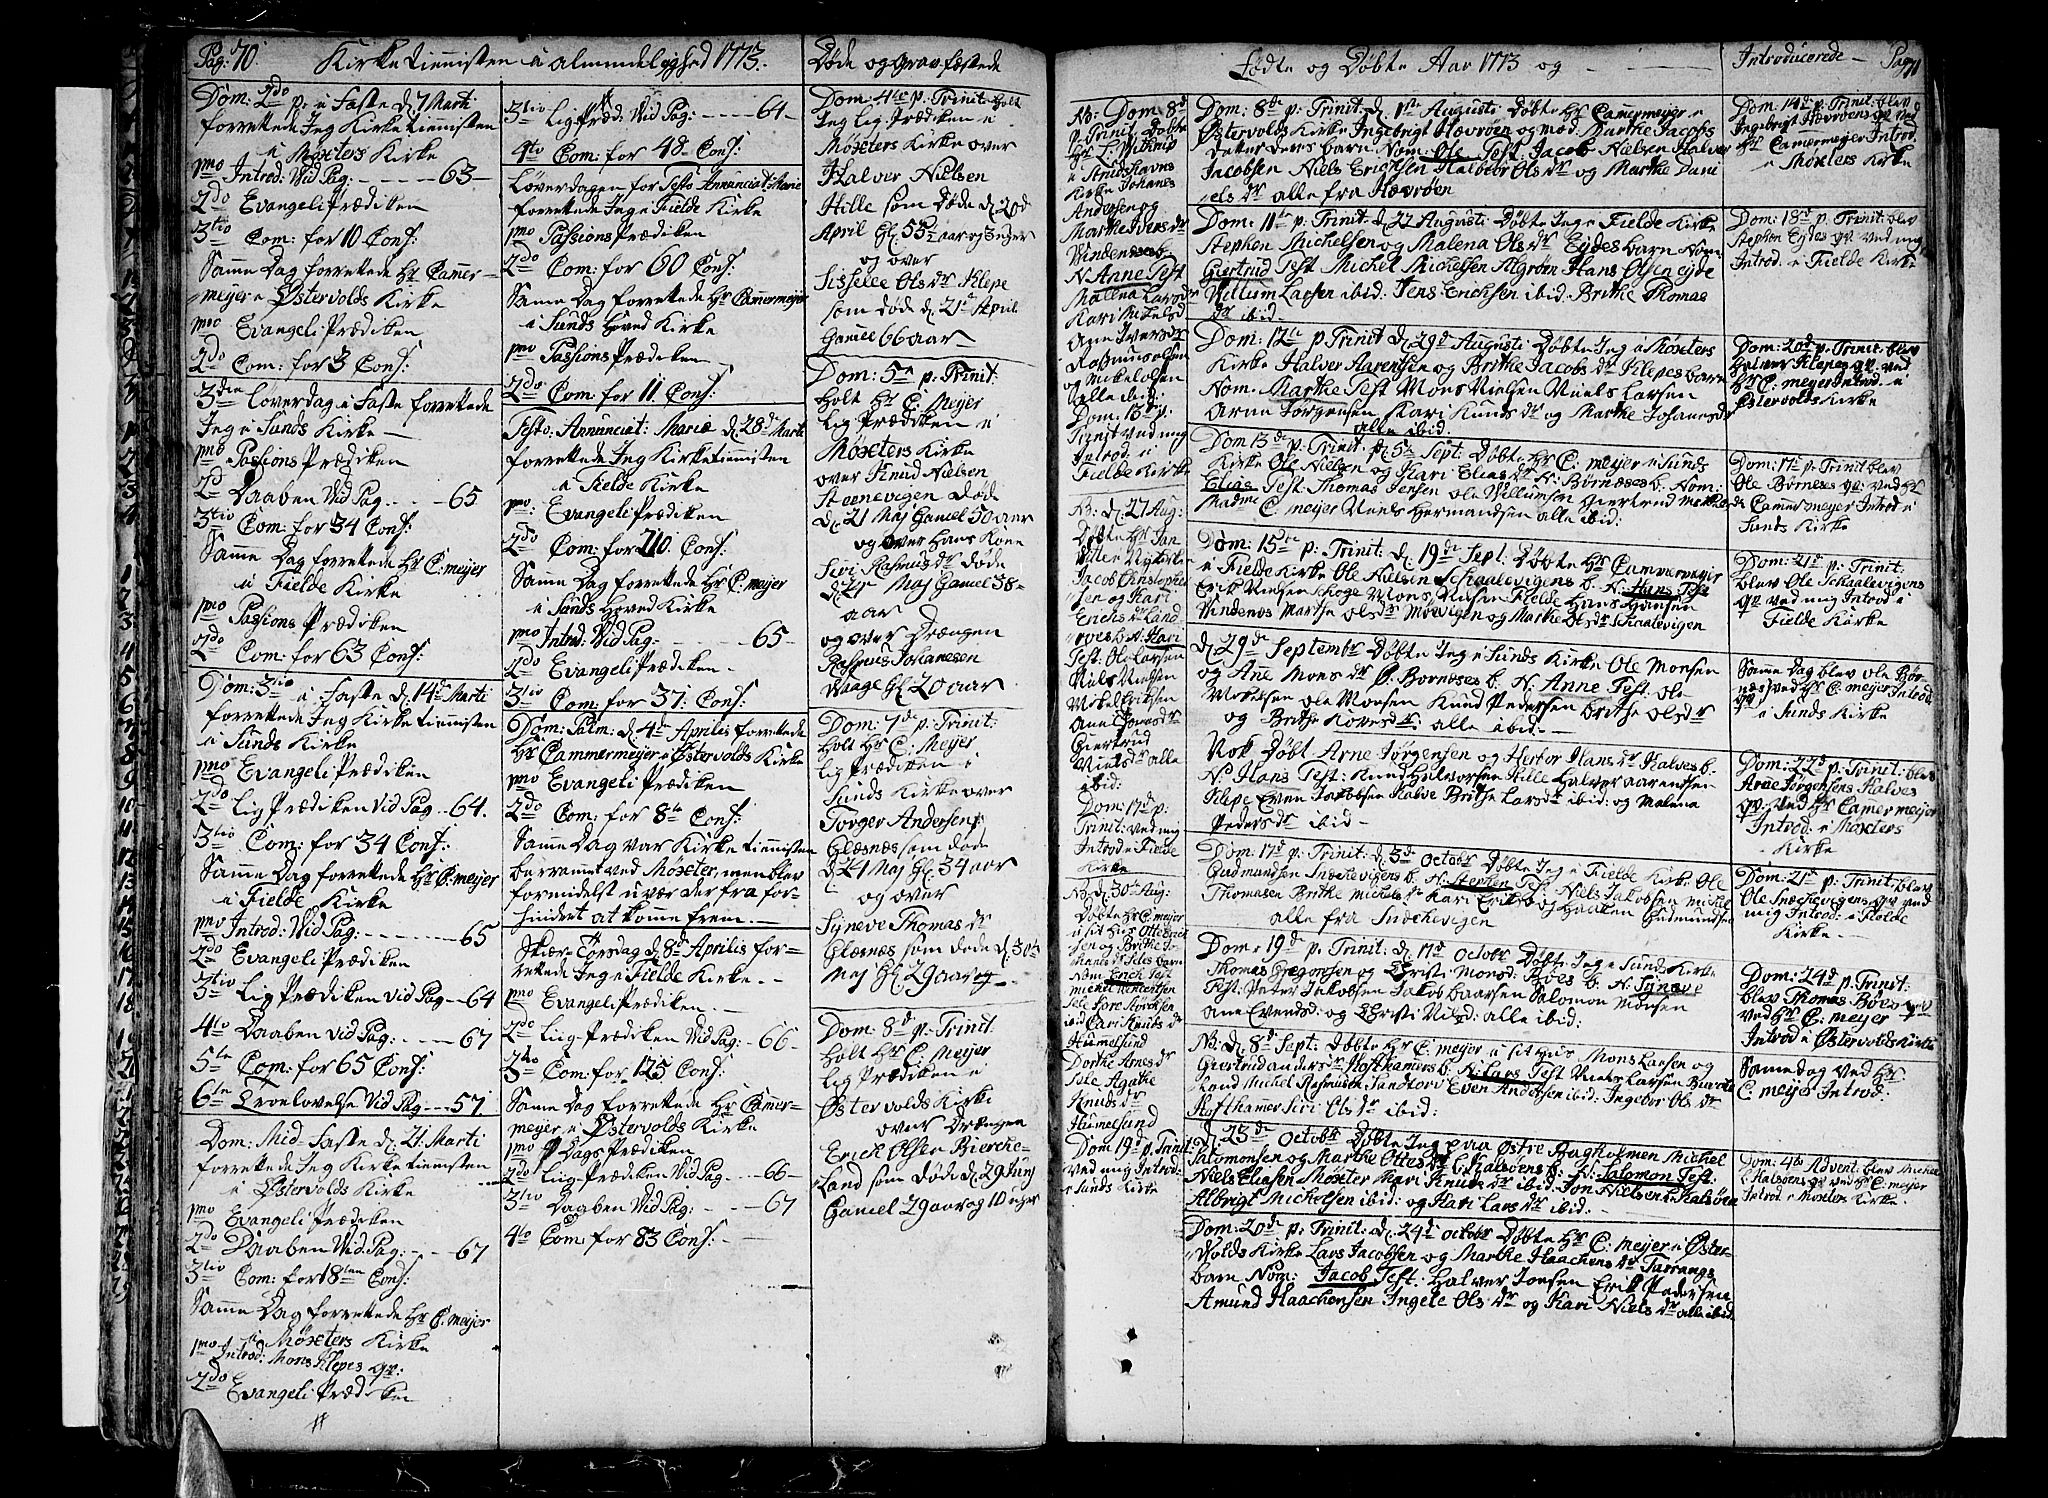 Pag: 70. Kirketiennisten i almindelighed 1773.
Døde og Grav fæstede
Dom: 2do p: i Faste d. 7 Marti
forrettede Jeg Kirketiennisten
i Møxters Kirke
pmo Introd: Vid Pag: - - - - - 63 -
2do Evangeli Prædiken
3tio Com: for 10 Conf:
Samme Dag forrettede Hr Cammer-
meyer i Østervolds Kirke
pmo Evangeli Prædiken
2do Com: for 3 Conf:
3die Løverdag i Faste forrettede
Jeg i Sunds Kirke -
pmo Passions Prædiken
2do Daaben Vid Pag - - - - 65
3tio Com: for 34 Conf:
Samme Dag forrettede Hr C: meijer
i Fielde Kirke
pmo Passions Prædiken
2do Com: for 63 Conf:
Dom: 3tio i Faste d. 14de Marti
forrettede Jeg Kirketiennisten
i Sunds Kirke
pmo Evangeli Prædiken
2do Lig Prædiken Vid Pag - - 64.
3tio Com: for 34 Conf:
Samme Dag forrettede Hr C: meijer
i Fielde Kirke
pmo Introd: Vid Pag: - - - - - - 65
2do Evangeli Prædiken
3tio Lig Prædiken Vid Pag - 64
4to Daaben Vid Pag: - - - - 67
5te Com: for 65 Conf:
6te Troelovelse Vid Pag - - - 57
Dom: Mid-Faste d. 21. Marti
forrettede Jeg Kirketiennisten
i Østervolds Kirke
pmo Evangeli Prædiken
2do Daaben Vid Pag: - - - 67
3tio Com: for 18ten Conf:
Samme Dag forrettede Hr C: meijer
i Møxters Kirke
pmo Introd: Mons Klepes qv:
2do Evangeli Prædiken
3tio Lig Præd: Vid Pag: - - - - - 64 -
4to Com: for 48 Conf:
Løverdagen for Festo Annunciat: Mariæ
forrettede Jeg i Fielde Kirke
pmo Passions Prædiken
2do Com: for 60 Conf:
Samme Dag forrettede Hr Cammermeyer
i Sunds Hoved Kirke
pmo Passions Prædiken
2do Com: for 11 Conf:
Festo: Annunciat: Mariæ d. 28de Marti
forrettede Jeg Kirketiennisten
i Fielde Kirke
pmo: Evangeli Prædiken
2do Com: for 210 Conf:
Samme Dag forrettede Hr C: meijer
i Sunds Hoved Kirke
pmo Introd: Vid Pag: - - - - - 65 -
2do Evangeli Prædiken -
3tio Com: for 37: Conf:
Dom: Palm: d. 4de Aprilis forrettede
Hr Cammermeyer i Østervolds Kirke
pmo Evangeli Prædiken
2do Com: for 8te Conf:
Samme Dag var Kirketiennisten
berammet ved Møxter, men blev
formidelst uvær der fra for-
hindret at kome frem. -
Skiær-Torsdag d. 8de Aprilis for-
rettede Jeg i Fielde Kirke. -
pmo Evangeli Prædiken. -
2do Liig-Prædiken Vid Pag: - - 66 -
3tio Com: for 125 Conf:
Samme Dag forrettede Hr Cammer-
meyer i Østervolds Kirke
pmo Dags Prædiken
2do Liig Prædiken Vid Pag - - - 66 -
3tio Daaben Vid Pag: - - - - 67
4to Com: for 83 Conf: -
Dom: 4de p: Trinit: Holt
Jeg Lig Prædiken i
Møxters Kirke over
Halver Nielsen
Hille som Døde d. 20d
April Gl. 55 aar og 3 uger
og over
Sisselle Ols dr Klepe
som døde d. 21d April
Gamel 66 aar
Dom: 5te p: Trinit:
Holt Hr C: Meijer
Lig Prædiken i
Møxters Kirke
over Knud Nielsen
Steenevigen Døde
d. 21 Maj Gamel 50 aar
og over Hans Kone
Siri Rasmus dr døde
d. 21 Maj Gamel 38-
aar
og over Drængen
Rasmus Johanesen
Waage Gl. 20 aar
Dom: 7de p: Trinit:
Holt Hr C: Meijer
Lig Prædiken i
Sunds Kirke over
Torger Andersen
Glesnæs som døde
d. 24 Maj Gl. 34 aar
og over
Syneve Thomas dr
Glesnes som døde d. 30te
Maj Gl. 29 aar
Dom: 8de p: Trinit.
Holt Hr C: Meijer
Lig Prædiken i
Østervolds Kirke
over Drængen
Erich Olsen Biercke-
Land som Døde d. 29 Junj
Gamel 29 aar og 10 uger
Fødte og Døbte Aar 1773 og - - -
Introducerede - Pag: 71
No: Dom: 8de
p: Trinit: Døbte
Hr Withrup
i Knudshavns
Kirke Johanes
Andersen og
Marthe Ivers dr
Vindenes b.
N: Anne Test
Mallena Lars dr
Kari Mikels d
Ane Ivers dr
Rasmus olsen
og Mikel olsen
alle ibid:
Dom: 13de p:
Trinit Ved mig
Introd: i
Fielde Kirke
No: d. 27 Aug:
Døbte Hr Jan
Jacob Christophe-
sen og Kari
Erichs dr Land-
roes b: N: Kari
Test: Ole Larsen
Niels Nielsen
Mikel Eriksen
Giertrud
Niels dr alle
ibid:
Dom: 17de p:
Trinit: ved mig
Introd i Fielde
Kirke
No: d. 30te Aug:
Døbte Hr C: meijer
i sit Hus Otte Erick
sen og Brithe Jo-
hanes dr Teles barn
Nom: Erich Test
Michel Vincentsen
ibid Cari Knuds dr
Hummelsund
Dorthe Arnes dr
Tele Agathe
Knuds dr
Humelsund
Dom 19de p: Trinit:
ved mig Introd:
i Sunds Kirke
Dom: 8de p: Trinit: d. 1ste Augusti Døbte Hr Cammermeijer i
Østervolds Kirke Ingebrigt Hevrøen og mod. Marthe Jacobs
detter deres barn. Nom: Ole Test: Jacob Nielsen Halver
Jacobsen Niels Erichsen Halbor Ols dr og Marthe Dani
els dr alle fra Hevrøen
Dom: 11te p: Trinit: d. 22 Augusti Døbte Jeg i Fielde Kirke
Stephen Michelsen og Malena Ols dr Eydes barn Nom:
Giertrud Test Michel Michelsen Algrøen Hans Olsen eyde
Willum Larsen ibid. Jens Erichsen ibid: Brithe Thomas
dr ibid. -
Dom: 12te p: Trinit d. 29de Augusti Døbte Jeg i Møxters
Kirke Halver Aarentsen og Brithe Jacobs dr Klepes barn
Nom. Marthe Test Mons Nielsen Niels Larsen
Arne Jørgensen Kari Knuds dr og Marthe Johanes dr
alle ibid.
Dom 13de p: Trinit. d. 5te Sept: Døbte Hr C: meijer i Sunds
Kirke Ole Nielsen og Kari Elias dr N: Børnøses b. Nom:
Elias Test: Thomas Jensen Ole Willumsen Giertrud
Madme C: meijer Niels Hermandsen alle ibid:
Dom: 15te p: Trinit: d. 19de Sept. Døbte Hr Cammermeyer
i Fielde Kirke Ole Nielsen Schaalevigens b. N: Hans Test
Erik Nielsen Schoge Mons Nielsen Fielde Hans Hansen
Vindenes Marthe Ols dr Møvigen og Marthe Ols dr Schaalevigen
d. 29de Septembr Døbte Jeg i Sunds Kirke Ole Monsen
og Ane Mons dr Ø. Bornøses b. N: Anne Test. Ole
Mikelsen Ole Monsen Knud Pedersen Brithe Ols dr
og Brithe Koves dr: alle ibid: -
Nok Døbt Arne Jørgensen og Herbor Hans dr Kalves b:
N: Hans Test: Knud Halvorsen Hille Halver Aarentsen
Klepe Even Jakobsen Kalve Brithe Lars dr ibid: og Malena
Peders dr ibid -
Dom: 17de p: Trinit: d. 3de Octobr Døbte Jeg i Fielde Kirke Ole
Gudmundsen Snekevigens b. N: Stephen Test Niels Jakobsen Michel
Thomasen Brithe Michels dr Kari Eriks d og Haaken Gudmundsen
alle fra Snekevigen
Dom: 19de p: Trinit: d. 17de Octobr Døbte Jeg i Sunds Kirke
Thomas Gregorsen og Christi Monsd: Bøes b. N: Syneve
Test: Peter Jakobsen Jakob Baarsen Salomon Monsen
Ane Evensd: og Christi Nilsd: alle ibid:
No: d. 8de Sept: Døbte Hr C: meijer i sit Hus Mons Larsen og
Giertrud Anders dr Hoftkamers b. N: Lars Test Niels Larsen
Michel Rasmusen Sandtorv Even Andersen ibid: Ingebor Ols dr
Hoftkammer Siri Ols dr ibid:
d. 23de Octobr Døbte Jeg paa Østre Bagholmen Michel
Salomonsen og Marthe Ottes dr L. Kalsøens b. N: Salomon Test:
Niels Eliasen Møxter Mari Knuds dr ibid: Jon Nielsen L. Kalsøen
Albrigt Michelsen ibid: og Kari Lars dr ibid. -
Dom: 20de p: Trinit: d. 24de Octobr Døbte Hr C: meijer i Øster-
volds Kirke Lars Jacobsen og Marthe Haachens dr Turrangs
barn Nom: Jacob Test: Halver Jonsen Erik Pedersen
Amund Haachensen Ingele Ols dr og Kari Niels dr alle ibid
Dom: 14de p: Trinit: blev
Ingebrigt Hevrøens qv ved
Hr Cammermejer Introd
i Møxters Kirke
Dom: 18de p: Trinit: blev
Stephen Eydes qv ved mig
Introd. i Fielde Kirke
Dom: 20de p: Trinit: blev
Halver Klepes qv: ved
Hr C: meijer Introd. i
Østervolds Kirke
Dom: 17de p: Trinit blev
Ole Børnøses qv: ved Hr
Camermeyer Introd i
Sunds Kirke
Dom: 21de p: Trinit:
blev Ole Schaalevigens
qv ved mig Introd i
Fielde Kirke
Samme Dag blev Ole Bør-
nøses qv ved Hr C: meijer Introd
i Sunds Kirke
Dom: 22de p: Trinit: blev
Arne Jørgensens Kalves
qv: ved Hr Camermeijer
Introd: i Møxters
Kirke
Dom: 21de p: Trinit: blev
Ole Snekevigens qv ved
mig Introd: i Fielde
Kirke -
Dom: 24de p: Trinit:
blev Thomas Bøes qv
ved Hr C: meijer
Introd i Østervolds Kirke
Samme dag ved Hr
C: meijer Introd:
Dom: 4de Advent: blev Michel
L: Kalsøens qv ved Hr C: meijer
Introd i Møxters Kirke